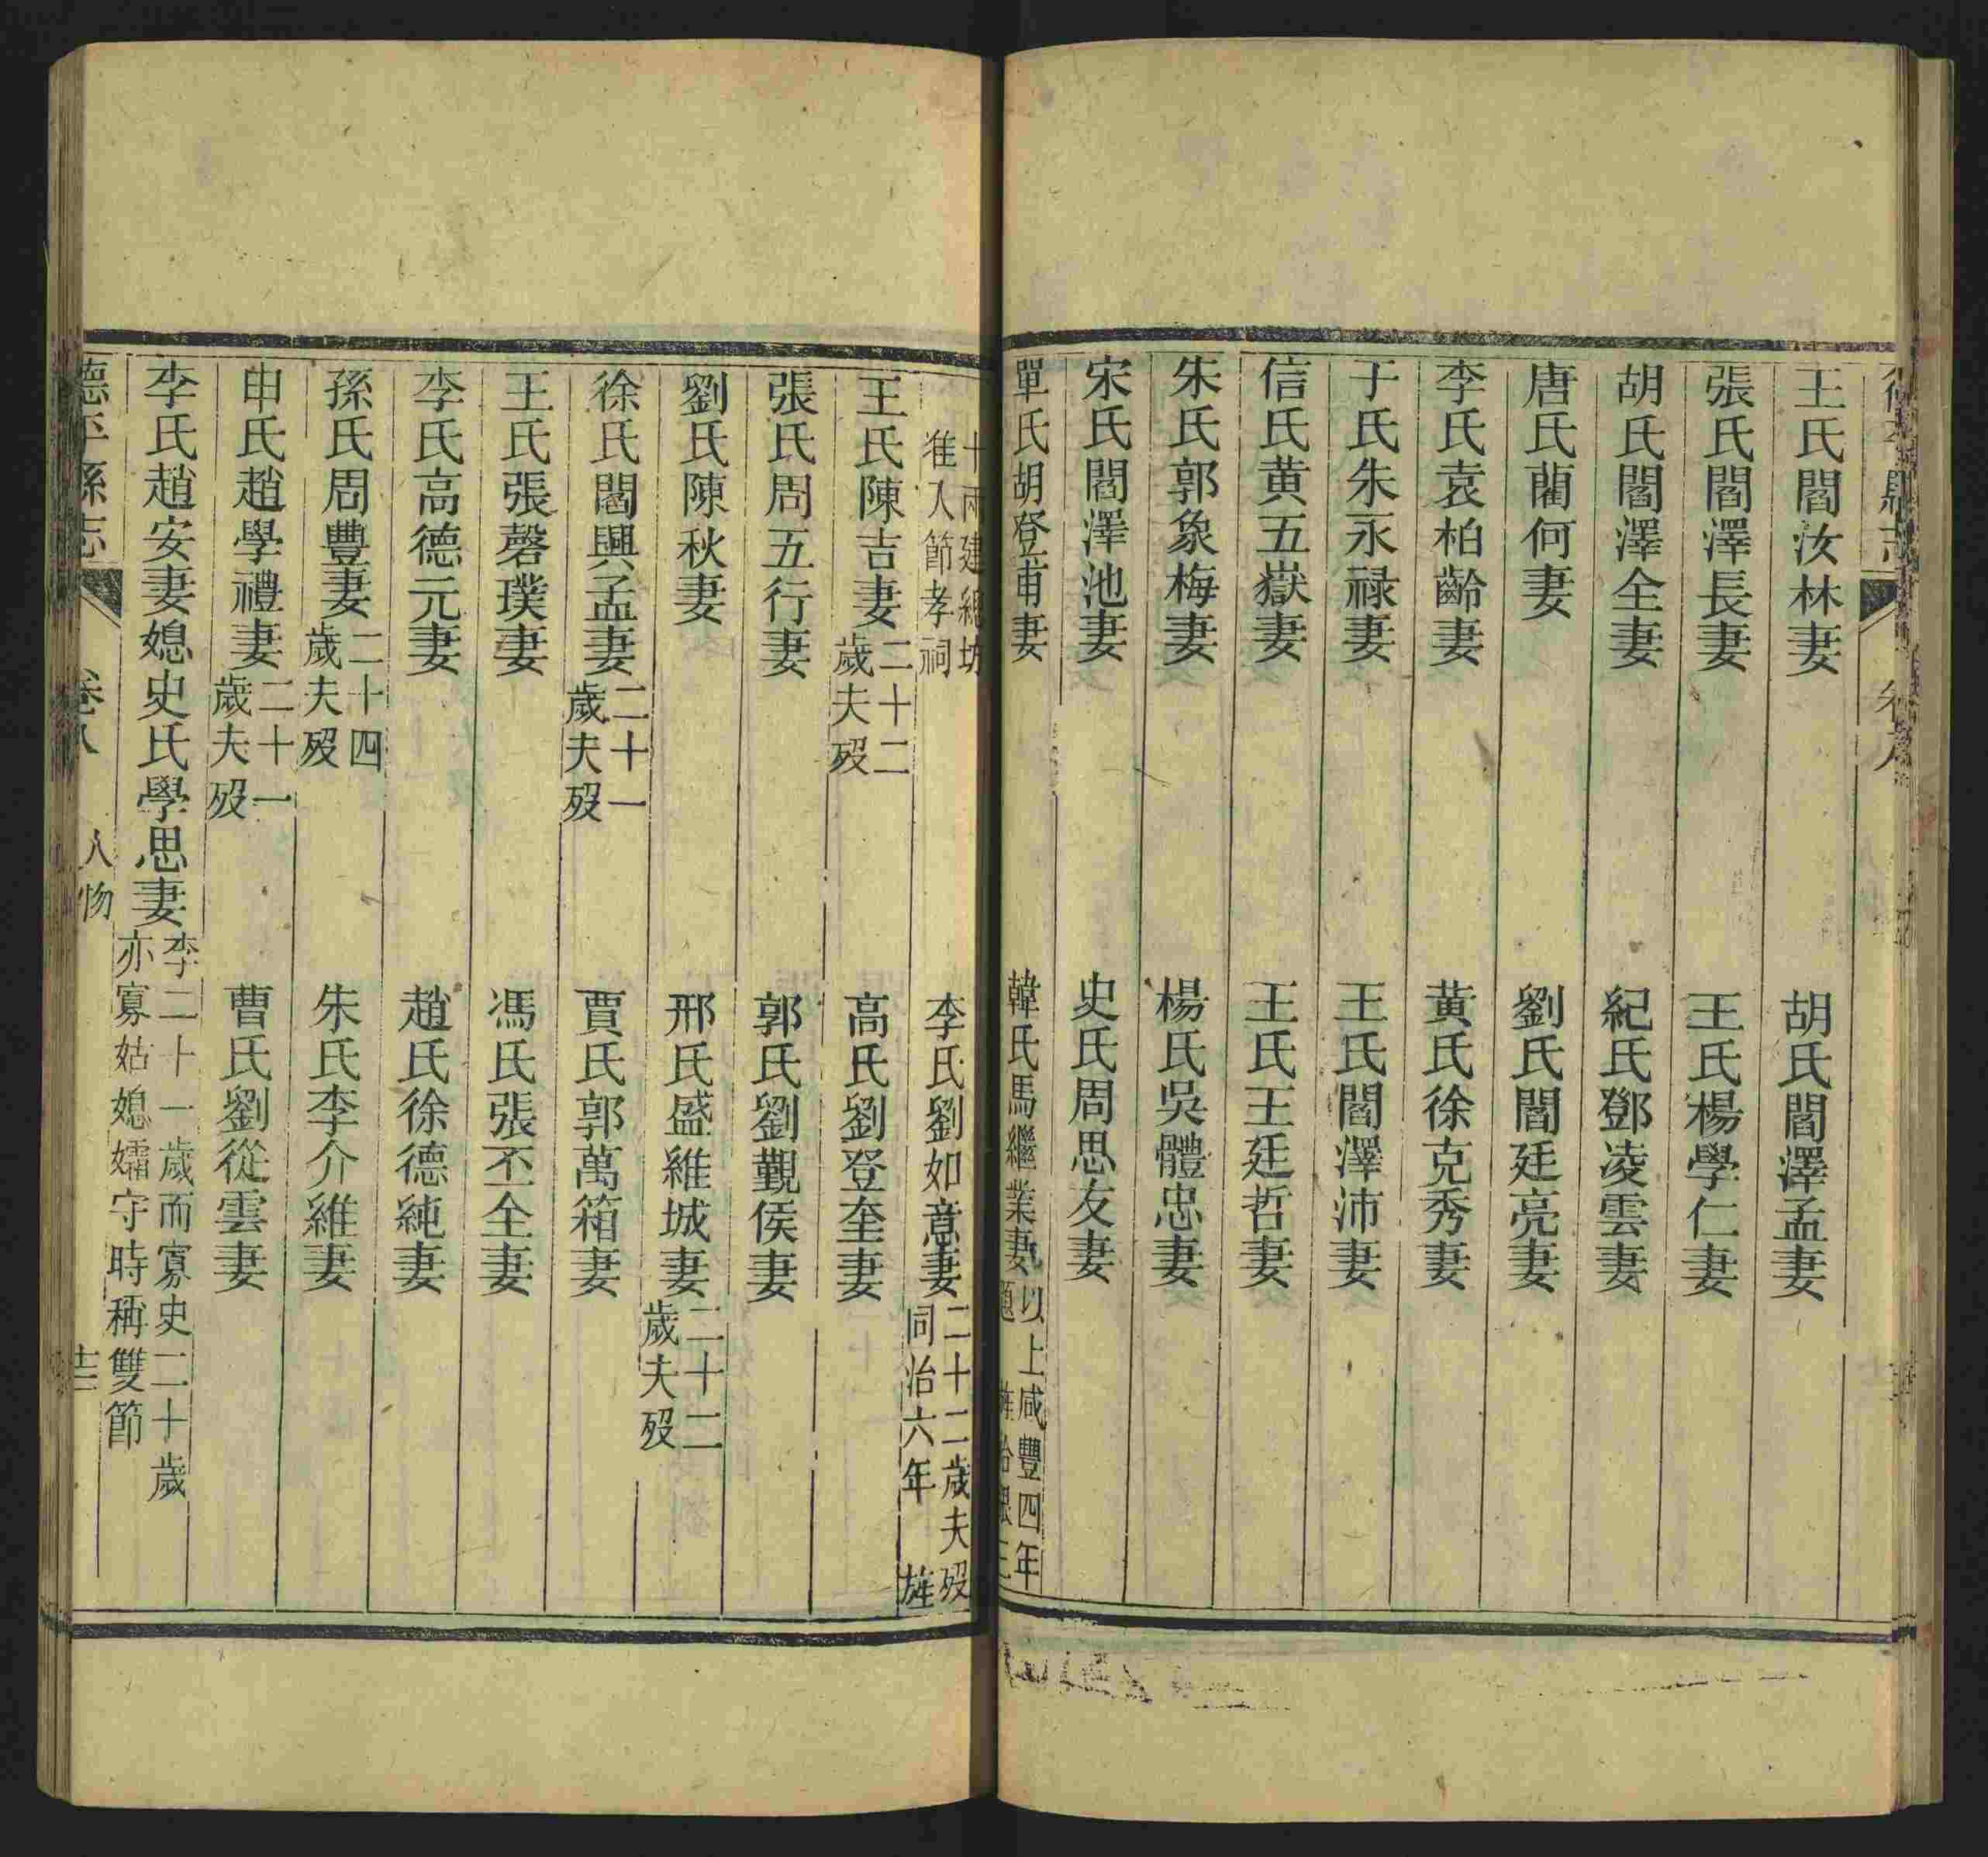 王氏閻汝林妻　胡氏閻澤孟妻
張氏閻澤長妻　王氏楊學仁妻
胡氏閻澤全妻　紀氏鄧凌雲妻
唐氏藺何妻　劉氏閻廷亮妻
李氏袁柏齡妻　黃氏徐克秀妻
于氏朱永禄妻　王氏閻澤沛妻
信氏黄五嶽妻　王氏王廷哲妻
朱氏郭象梅妻　楊氏吳體忠妻
宋氏閻澤池妻　史氏周思友妻
單氏胡登甫妻　韓氏馬繼業妻
以上咸豐四年
題旌給銀三
十兩建總坊
准入節孝祠
李氏劉如意妻
二十二歲夫歿
同治六年　旌
王氏陳吉妻
二十二
歲夫歿
高氏劉登奎妻
張氏周五行妻　郭氏劉觀侯妻
劉氏陳秋妻　邢氏盛維城妻
二十二
歲夫歿
徐氏閻興孟妻
二十一
歲夫歿
賈氏郭萬箱妻
王氏張磬璞妻　馮氏張丕全妻
李氏高德元妻　趙氏徐德純妻
孫氏周豐妻
二十四
歲夫歿
朱氏李介維妻
申氏趙學禮妻
二十一
歲夫歿
曹氏劉從雲妻
李氏趙安妻媳史氏學思妻
李二十一歲而寡史二十歲
亦寡姑媳孀守時稱雙節
德平縣志　卷八　人物